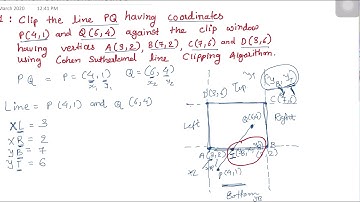 March 2020 12:41 PM
1: Clip the line PQ having coordinates
P(4,1) and Q(6,4) against the clip window
having vertices A(3,2), B(7,2), C(7,6) and D(3,6)
using Cohen Sutherland line Clipping Algorithm.
PQ = P = (4, 1) Q = (6, 4)
x1 y1 x2 y2
Line = P(4,1) and Q(6,4)
D(3,6) Top C(7,6)
xL = 3
xR = 2
yB = 7
yT = 6
Left Right
Q(6,4)
A(3,2) B
P(4,1)
Bottom